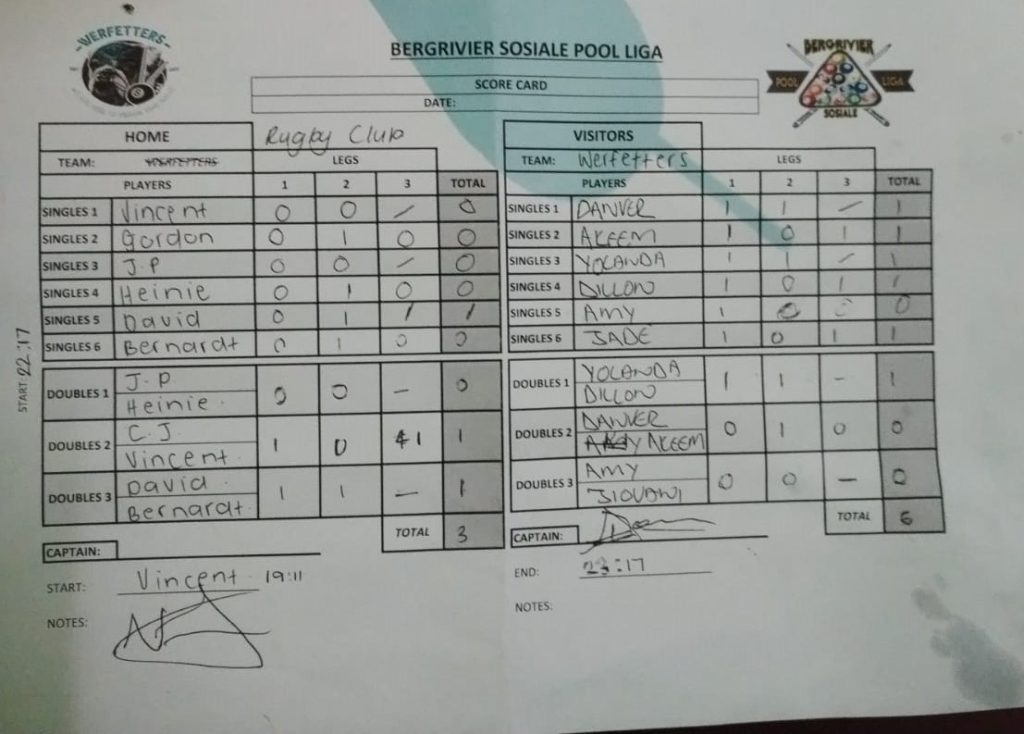 WERFETTERS
BERGRIVIER SOSIALE POOL LIGA
BERGRIVIER
POOL LIGA
SOSIALE
SCORE CARD
DATE:
HOME Rugby Club VISITORS
TEAM: WERFETTERS LEGS TEAM: Werfetters LEGS
PLAYERS 1 2 3 TOTAL PLAYERS 1 2 3 TOTAL
SINGLES 1 Vincent 0 0 / 0 SINGLES 1 DANVER 1 1 / 1
SINGLES 2 Gordon 0 1 0 0 SINGLES 2 AKEEM 1 0 1 1
SINGLES 3 J.P 0 0 / 0 SINGLES 3 YOLANDA 1 1 / 1
SINGLES 4 Heinie 0 1 0 0 SINGLES 4 DILLON 1 0 1 1
SINGLES 5 David 0 1 1 1 SINGLES 5 Amy 1 0 0 0
SINGLES 6 Bernardt 0 1 0 0 SINGLES 6 JADE 1 0 1 1
DOUBLES 1 J.P 0 0 - 0 DOUBLES 1 YOLANDA 1 1 - 1
Heinie. DILLON
DOUBLES 2 C.J. 1 0 1 1 DOUBLES 2 DANVER 0 1 0 0
Vincent. AKEEM
DOUBLES 3 David. 1 1 - 1 DOUBLES 3 Amy 0 0 - 0
Bernardt. JIOVANI
TOTAL 3 TOTAL 6
CAPTAIN: CAPTAIN:
START: Vincent. 19:11 END: 23:17
NOTES: NOTES:
START: 22:17